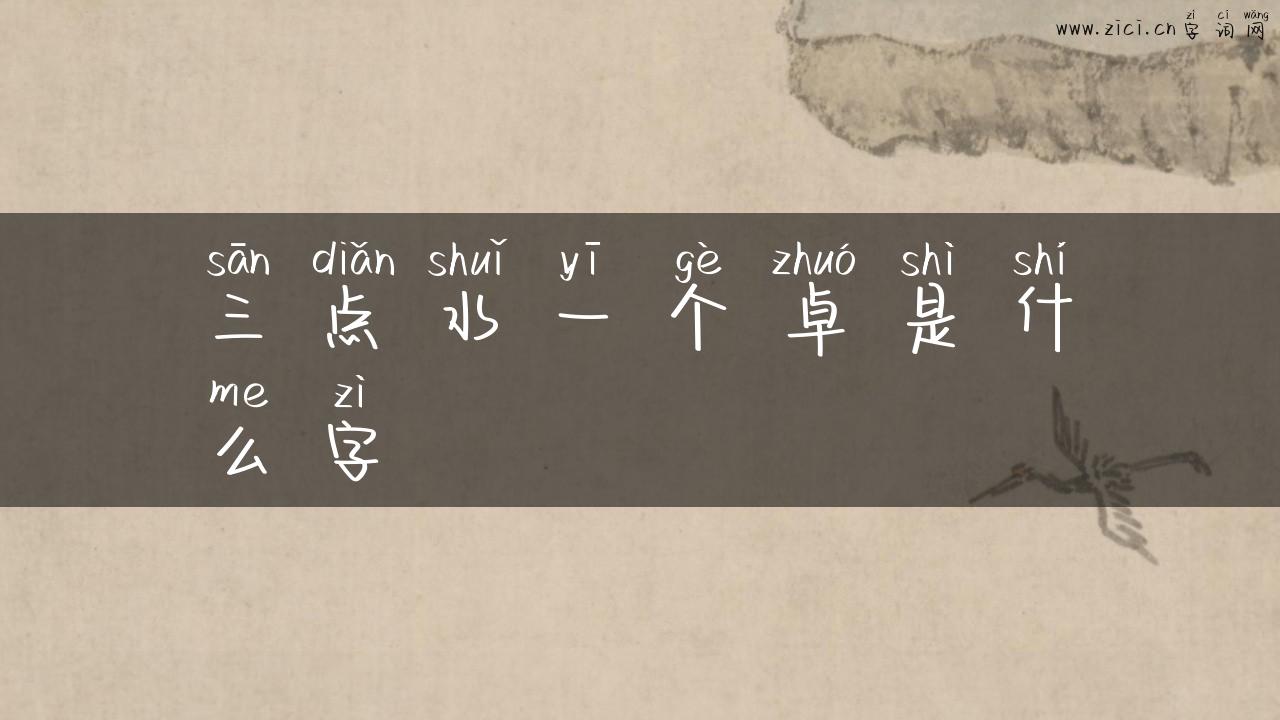 zì cí wǎng
www.zici.cn 字 词 网
sān diǎn shuǐ yī gè zhuó shì shí
三 点 水 一 个 卓 是 什
me zì
么 字